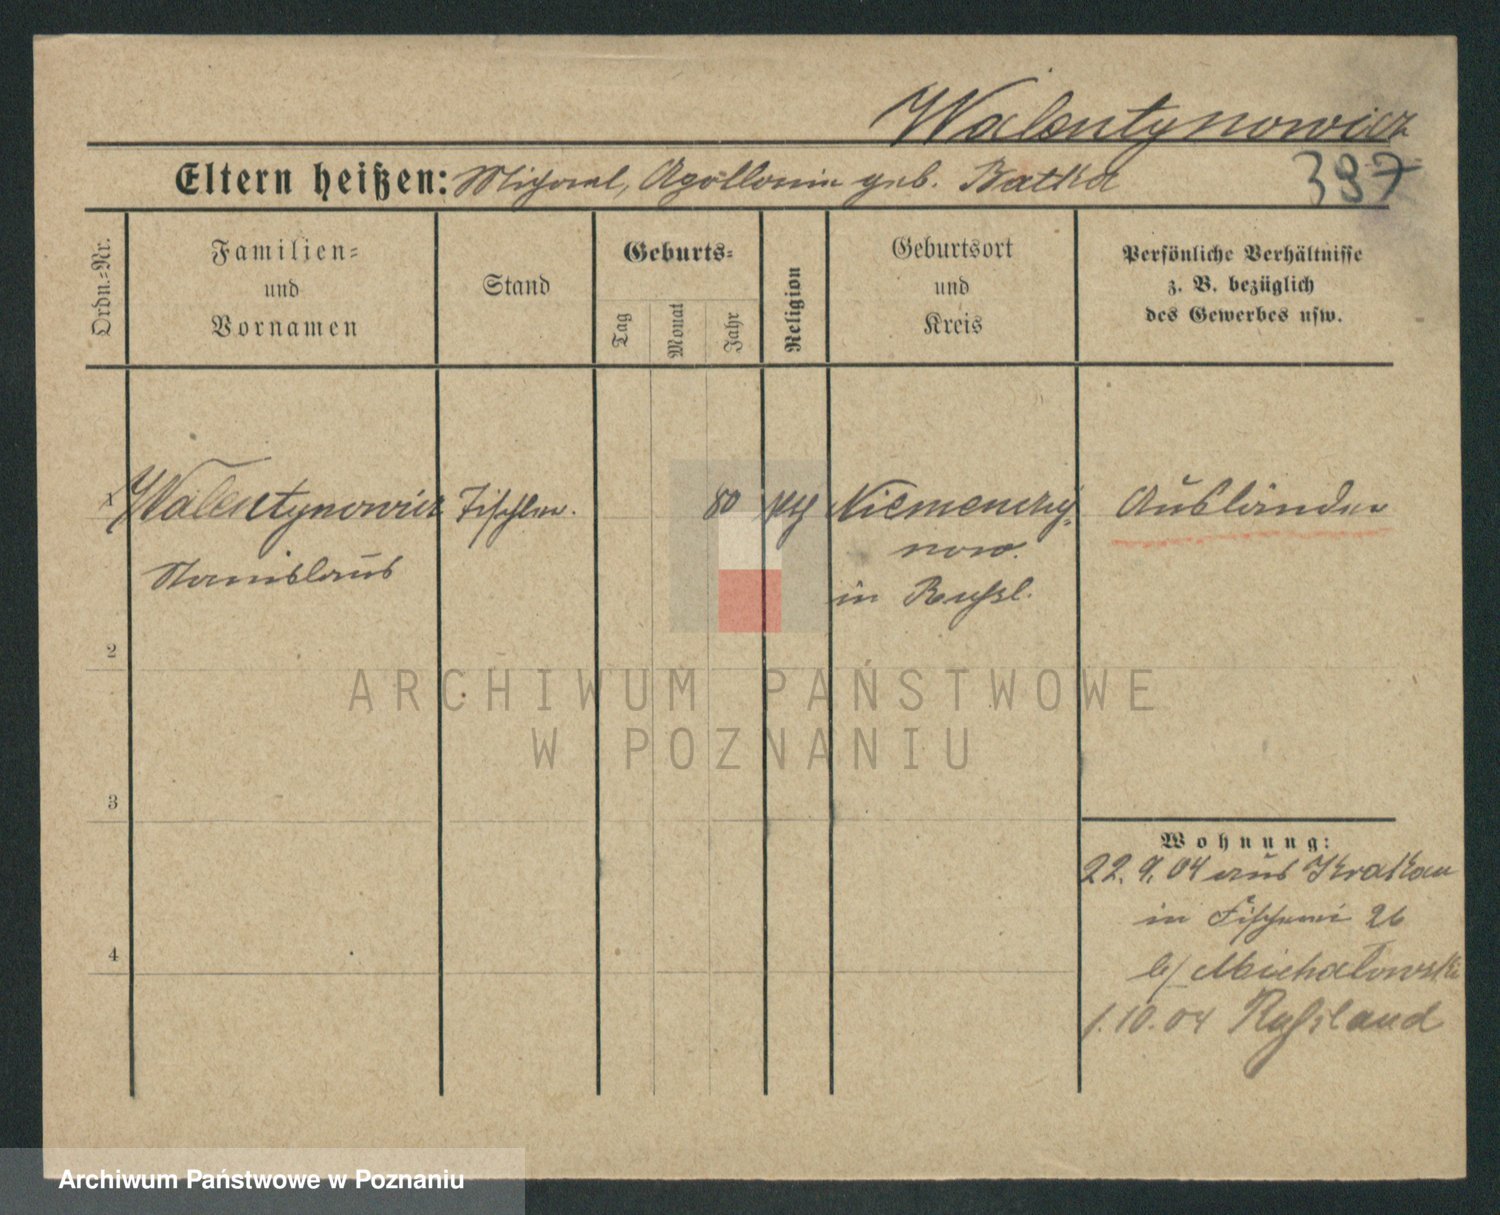 Walentynowicz
Eltern heißen: Michael, Apollonia geb. Batka
397
Ordn.=Nr.
Familien=
und
Vornamen
Stand
Geburts=
Tag
Monat
Jahr
Religion
Geburtsort
und
Kreis
Persönliche Verhältnisse
z. B. bezüglich
des Gewerbes usw.
1 Walentynowicz Tischler. 80 kth Niemenczy-
now.
Stanislaus
in Russl.
Ausländer
2
3
4
ARCHIWUM PAŃSTWOWE
W POZNANIU
Wohnung:
22. 9. 04 aus Krakau
in Fischerei 26
b/ Michałowski
1.10.04 Russland
Archiwum Państwowe w Poznaniu